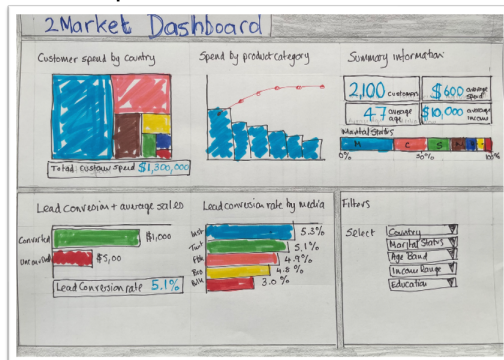 2Market Dashboard
Customer spend by Country
Total Custom spend $1,300,000
Spend by product category
Summary information
2,100 customers
$600 average spend
47 average age
$10,000 average income
Marital Status
M C S
0% 50% 100%
Lead Conversion + average sales
Converted $1,000
$5,00
Lead Conversion rate 5.1%
Lead conversion rate by media
5.3%
Twit 5.1%
4.9%
4.8 %
3.0 %
Filters
Select
Country
Marital Status
Age Band
Income Range
Education